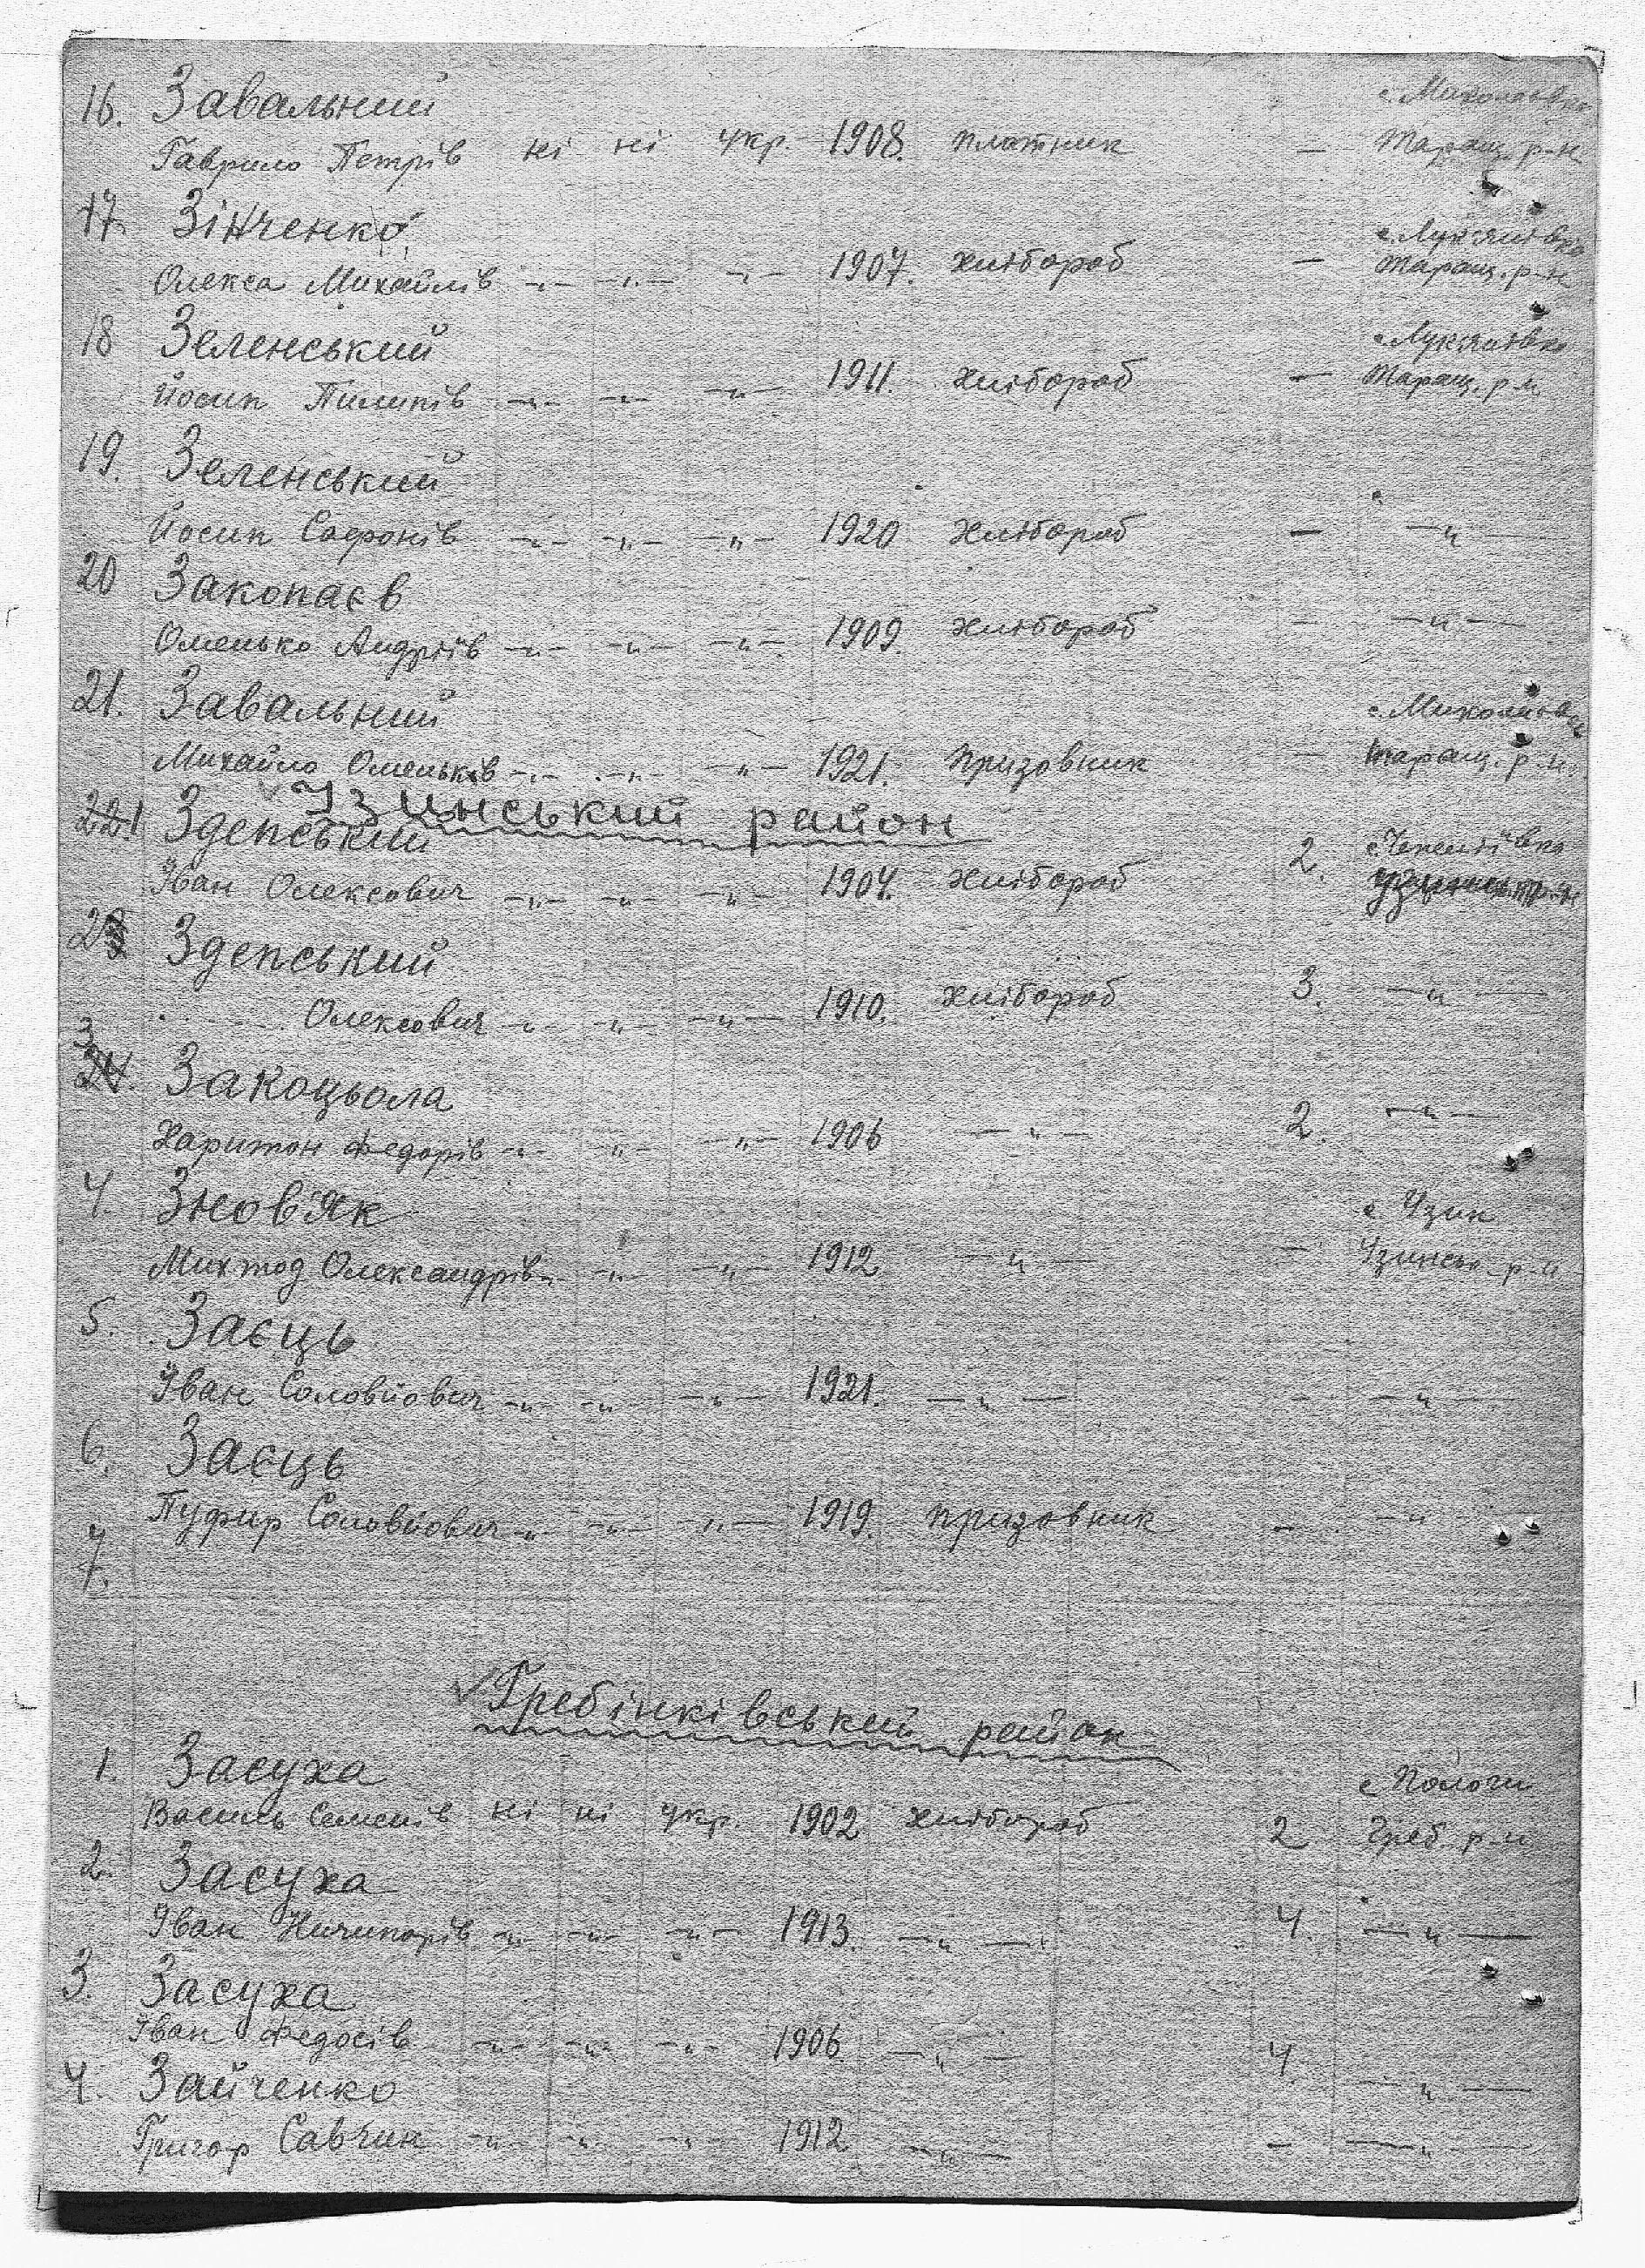 16. Завальний с. Миколаївка
Гаврило Петрів ні ні укр. 1908. платник — Таращ. р-н
17. Зінченко с. Лук'янівка
Олекса Михайлів -„- -„- -„- 1907. хлібороб — Таращ. р-н
18 Зеленський с. Лук'янівка
Йосип Пилипів -„- -„- -„- 1911. хлібороб — Таращ. р-н
19. Зеленський
Йосип Сафонів -„- -„- -„- 1920 хлібороб — —„—
20 Закопаєв
Омелько Андріїв -„- -„- -„- 1909. хлібороб — —„—
21. Завальний с. Миколаївка
Михайло Омельків -„- -„- -„- 1921. призовник — Таращ. р-н.
Узинський район
221 Зdепський
Іван Олексович -„- -„- -„- 1904. хлібороб 2. Узинськ. р-н
23 Здепський
Олексович -„- -„- -„- 1910. хлібороб 3. —„—
3
24. Закоцьола
Харитон Федорів -„- -„- -„- 1906 —„— 2. —„—
4. Знов'як с Узин
Олександрів -„- -„- -„- 1912 —„— — Узинськ. р-н
5. Заєць
Іван Соловйович -„- -„- -„- 1921. —„— —„—
6. Заєць
Соловйович -„- -„- -„- 1919. призовник — —„—
7.
Гребінківський район
1. Засуха с Пологи
Василь Семенів ні ні укр. 1902 хлібороб 2 Греб. р-н
2. Засуха
Іван Ничипорів -„- -„- -„- 1913. —„— 4. —„—
3. Засуха
Іван Федосів -„- -„- -„- 1906 —„— 4. —„—
4. Зайченко
Григор Савчин -„- -„- -„- 1912 —„— — —„—